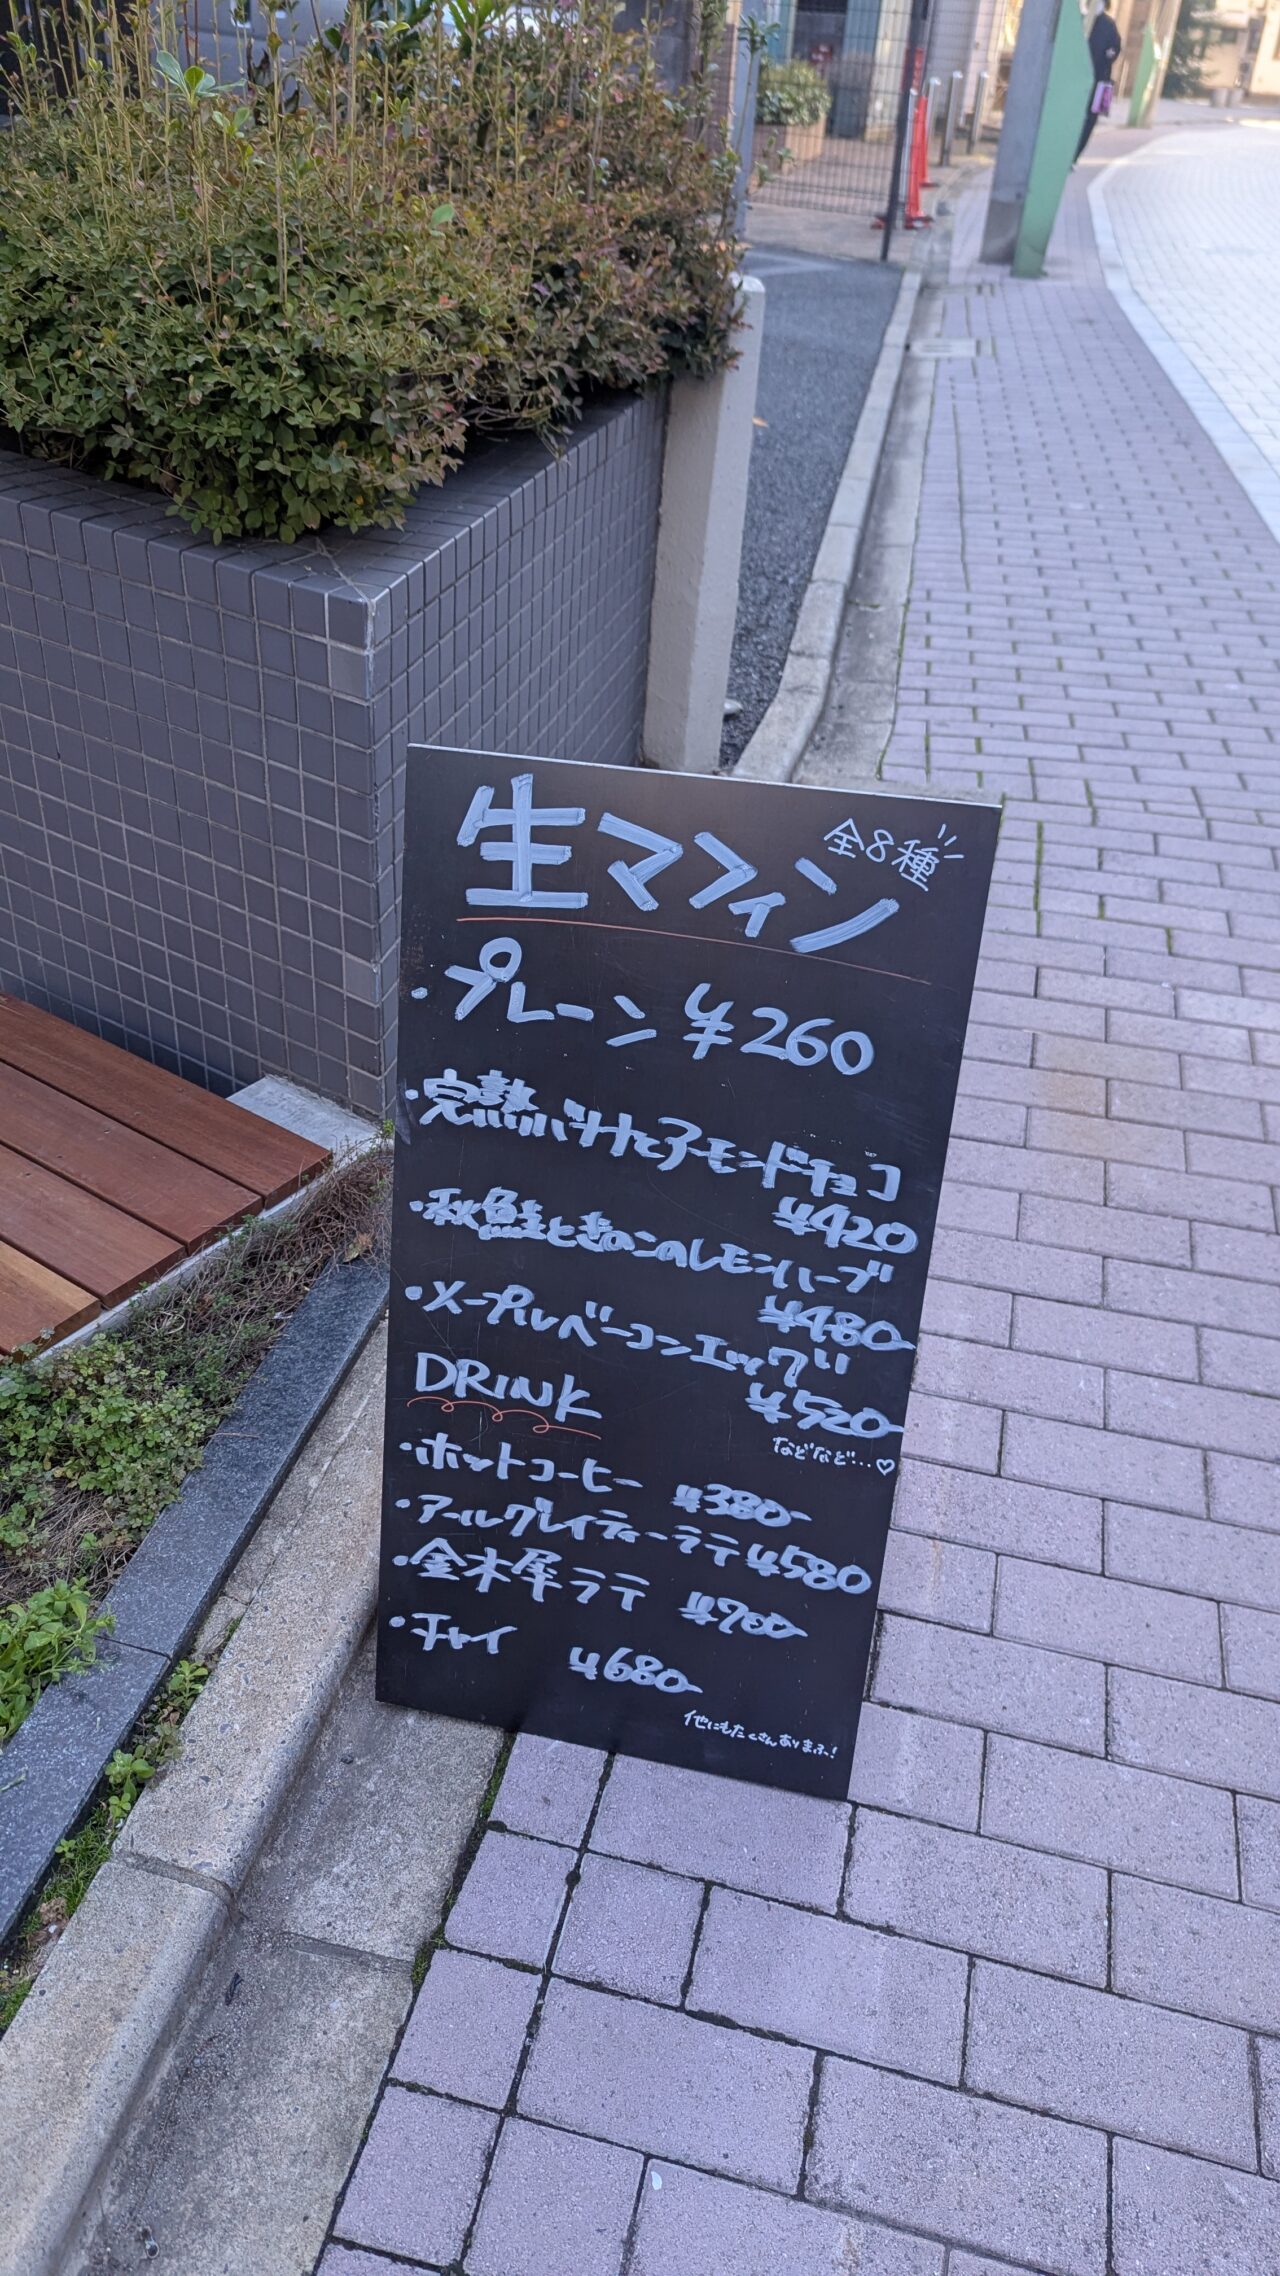 生マフィン 全8種
・プレーン ¥260
・完熟バナナとアーモンドチョコ
¥420
・秋鮭ときのこのレモンハーブ
¥480-
・メープルベーコンエッグ
¥520-
などなど…♡
DRINK
・ホットコーヒー ¥380-
・アールグレイティーラテ ¥580
・金木犀ラテ ¥700-
・チャイ ¥680-
他にもたくさんあります!